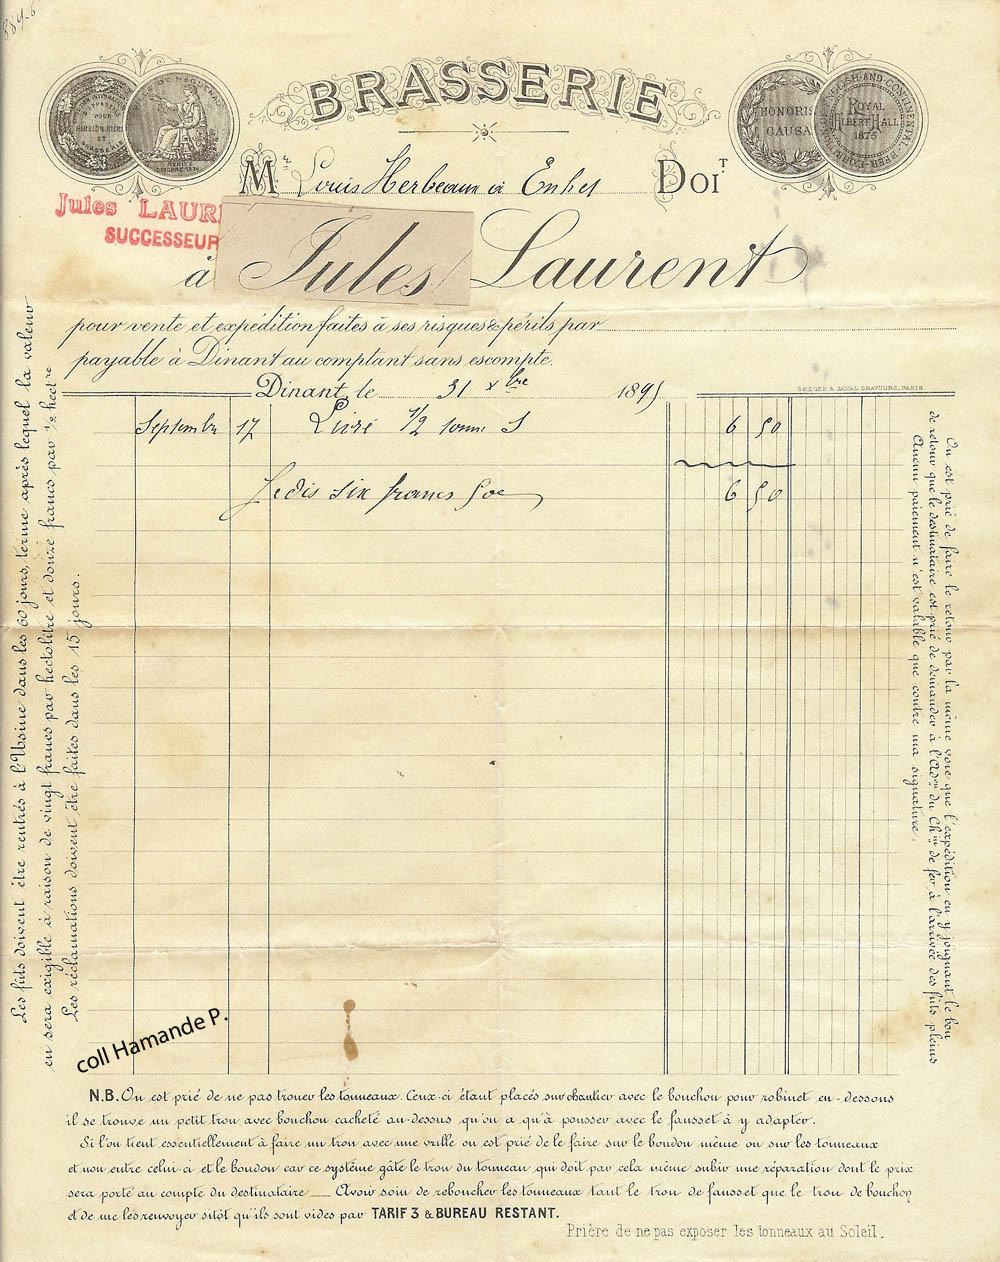 BRASSERIE
HONORIS
CAUSA
ROYAL
ALBERT HALL
1875
Mr Louis Herbeaux à Enhet DOIT
Jules LAUR
SUCCESSEUR
à Jules Laurent
pour vente et expédition faites à ses risques & périls par
payable à Dinant au comptant sans escompte.
Dinant, le 31 Xbre 1895
BREGER & JAVAL, GRAVEURS, PARIS.
Septembre 17 Livré 1/2 tonne S 6 50
Je dis six francs 50c 6 50
Les fûts doivent être rentrés à l'Usine dans les 60 jours, terme après lequel la valeur
en sera exigible à raison de vingt francs par hectolitre et douze francs par 1/2 hectre
Les réclamations doivent être faites dans les 15 jours.
On est prié de faire le retour par la même voie que l'expédition en y joignant le bon
de retour que le destinataire est prié de demander à l'Adon du Chin de fer à l'arrivée des fûts pleins
Aucun paiement n'est valable que contre ma signature.
coll Hamande P.
N.B. On est prié de ne pas trouer les tonneaux. Ceux-ci étant placés sur chantier avec le bouchon pour robinet en-dessous
il se trouve un petit trou avec bouchon cacheté au-dessus qu'on a qu'à pousser avec le fausset à y adapter.
Si l'on tient essentiellement à faire un trou avec une vrille on est prié de le faire sur le boudon même ou sur les tonneaux
et non entre celui-ci et le boudon car ce système gâte le trou du tonneau qui doit par cela même subir une réparation dont le prix
sera porté au compte du destinataire — Avoir soin de reboucher les tonneaux tant le trou de fausset que le trou de bouchon
et de me les renvoyer sitôt qu'ils sont vides par TARIF 3 & BUREAU RESTANT.
Prière de ne pas exposer les tonneaux au Soleil.